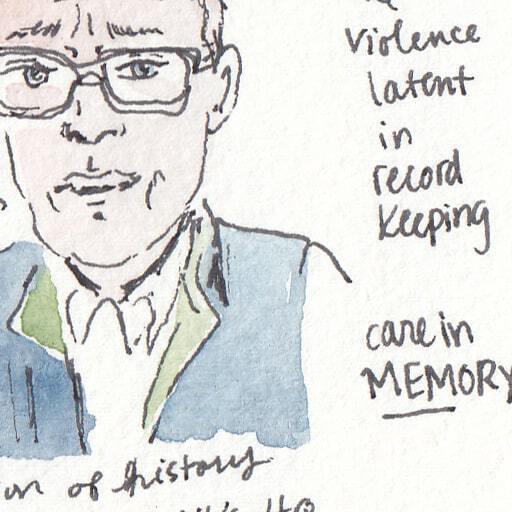 violence
latent
in
record
keeping
care in
MEMORY
of history